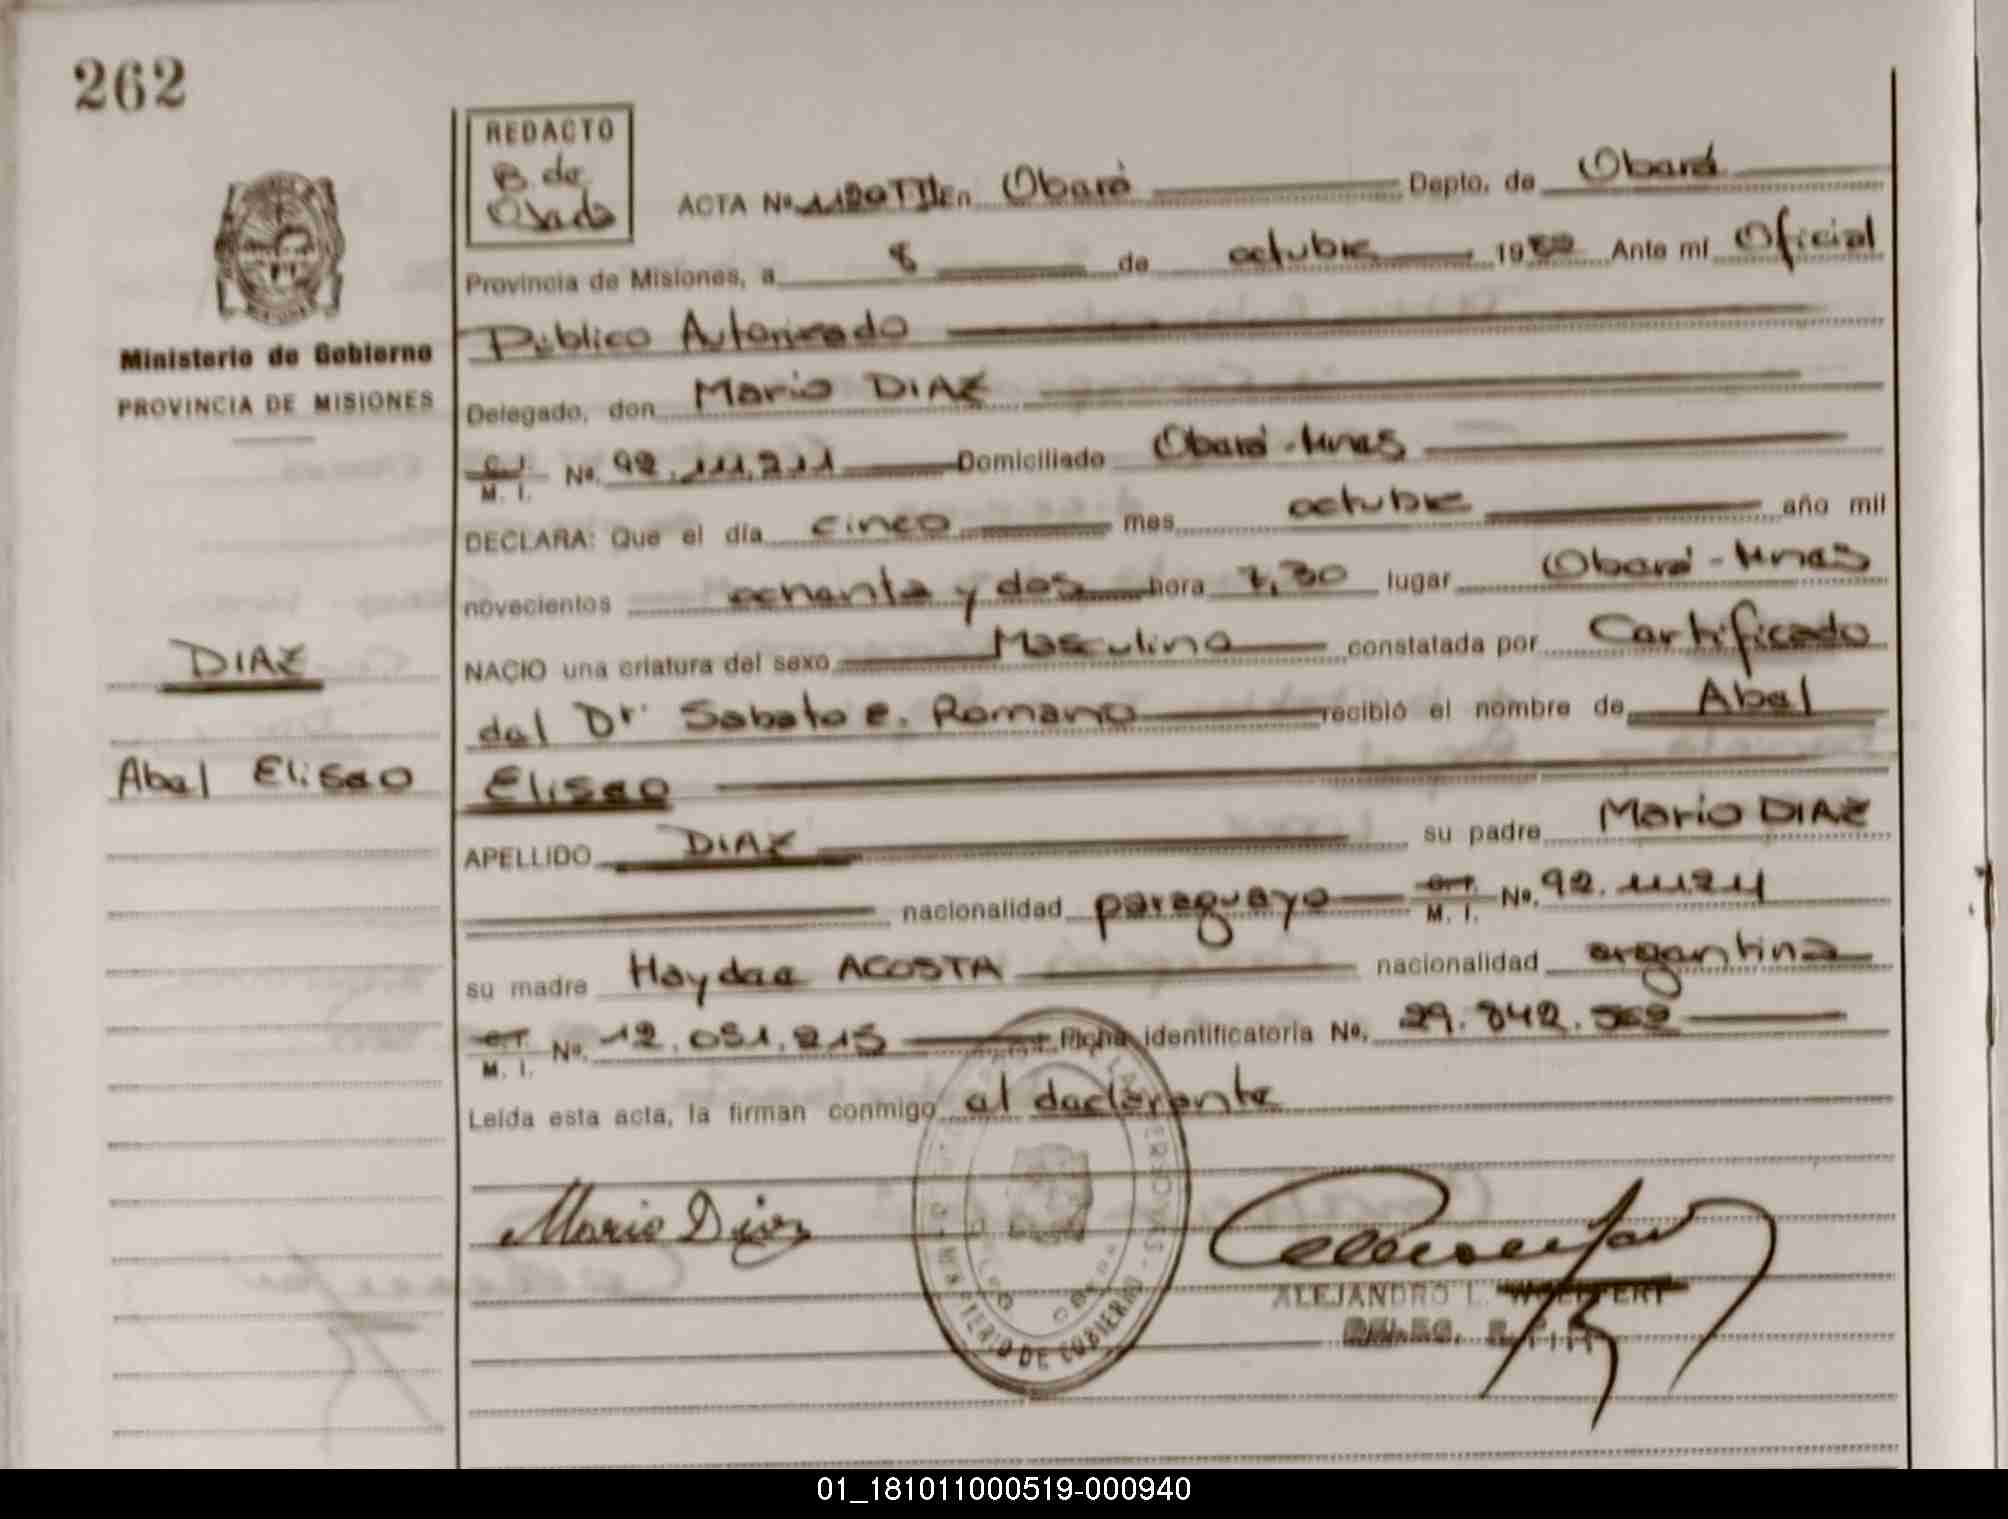 262
REDACTO
B. de
Ojada
ACTA Nº 1120 TIII En Oberá Depto. de Oberá
Provincia de Misiones, a 8 de octubre 1982 Ante mí Oficial
Público Autorizado
Ministerio de Gobierno
PROVINCIA DE MISIONES
Delegado, don Mario DIAZ
C. I.
M. I. Nº. 92.111.211 Domiciliado Oberá - Mnes
DECLARA: Que el día cinco mes octubre año mil
novecientos ochenta y dos hora 7,30 lugar Oberá - Mnes
DIAZ
NACIO una criatura del sexo Masculino constatada por Certificado
del Dr. Sabato e. Romano recibió el nombre de Abel
Abel Eliseo
Eliseo
APELLIDO DIAZ su padre Mario DIAZ
nacionalidad paraguayo M. I. Nº. 92.111.211
su madre Haydee ACOSTA nacionalidad argentina
M. I. Nº. 12.051.215 Ficha identificatoria Nº. 29.842.562
Leída esta acta, la firman conmigo el declarante
Mario Diaz
MINISTERIO DE GOBIERNO
ALEJANDRO L.
01_181011000519-000940